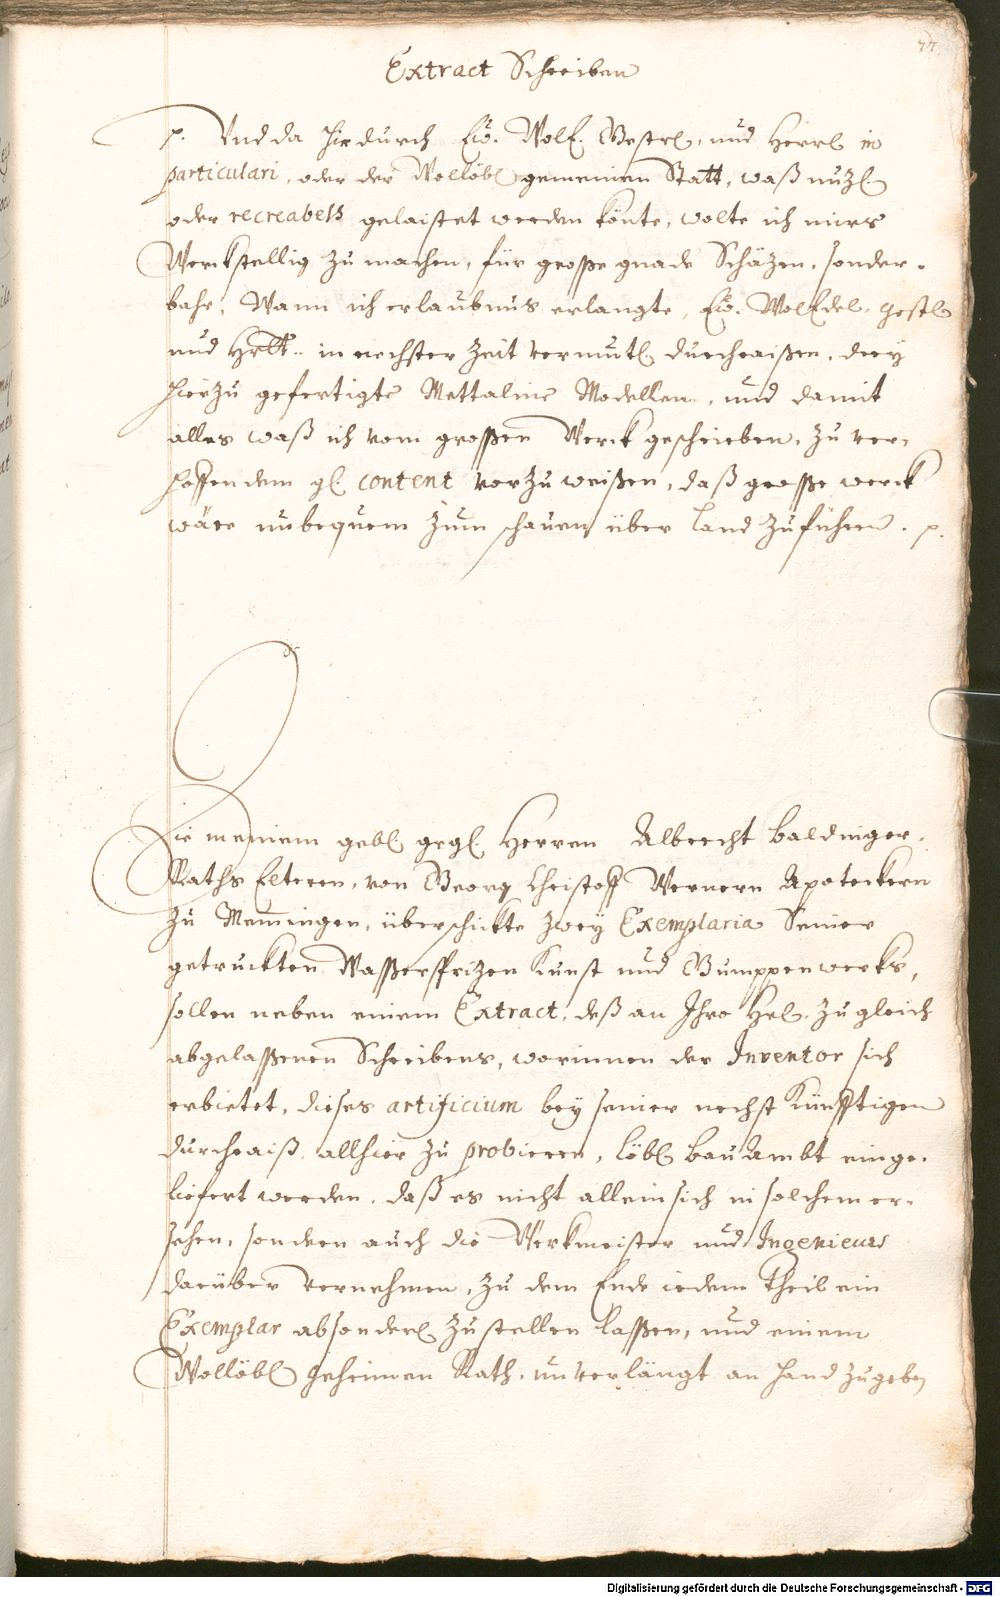 77.
Extract Schreiben
p. Vnd da hiedurch Ew. Wol E. Gestrl. und Herrl. in
particulari, oder der Wollöbl. gemeinen Statt, waß nuzl.
oder recreabels gelaistet werden könte, wolte ich mirs
Werckstellig zu machen, für große gnade Schäzen, sonder-
bahr, Wann ich erlaubnus erlangte, Ew. Wol Edel. Gestl.
und Hrtt. in nechster Zeit vermutl. durchraißen, drey
hierzu gefertigte Mettaline Modellen, und damit
alles waß ich vom großen Werck geschrieben, zu ver-
hoffendem gl. content vorzuweißen, daß große werck
wäre unbequem zum schauen über Land zuführen. p.
Die meinem gebl. grgl. Herren Albrecht Baldinger,
Raths Elteren, von Georg Christoff Wernern Apoteckern
zu Memmingen, überschickte zwey Exemplaria Seiner
getruckten Waßerspritzen Kunst und Gumppenwercks,
sollen neben einem Extract, deß an Ihro Hrl. zugleich
abgelaßenen Schreibens, worinnen der Inventor sich
erbietet, dieses artificium bey seiner nechst künfftigen
durchraiß allhier zu probieren, löbl. Bau Ambt einge-
liefert werden, daß es nicht allein sich in solchem er-
sehen, sondern auch die Werkmeister und Ingenieurs
darüber vernehmen, zu dem Ende iedem theil ein
Exemplar absonderl. zustellen laßen, und einem
Wollöbl. Geheimen Rath, unverlängt an Hand zugeben
Digitalisierung gefördert durch die Deutsche Forschungsgemeinschaft - DFG